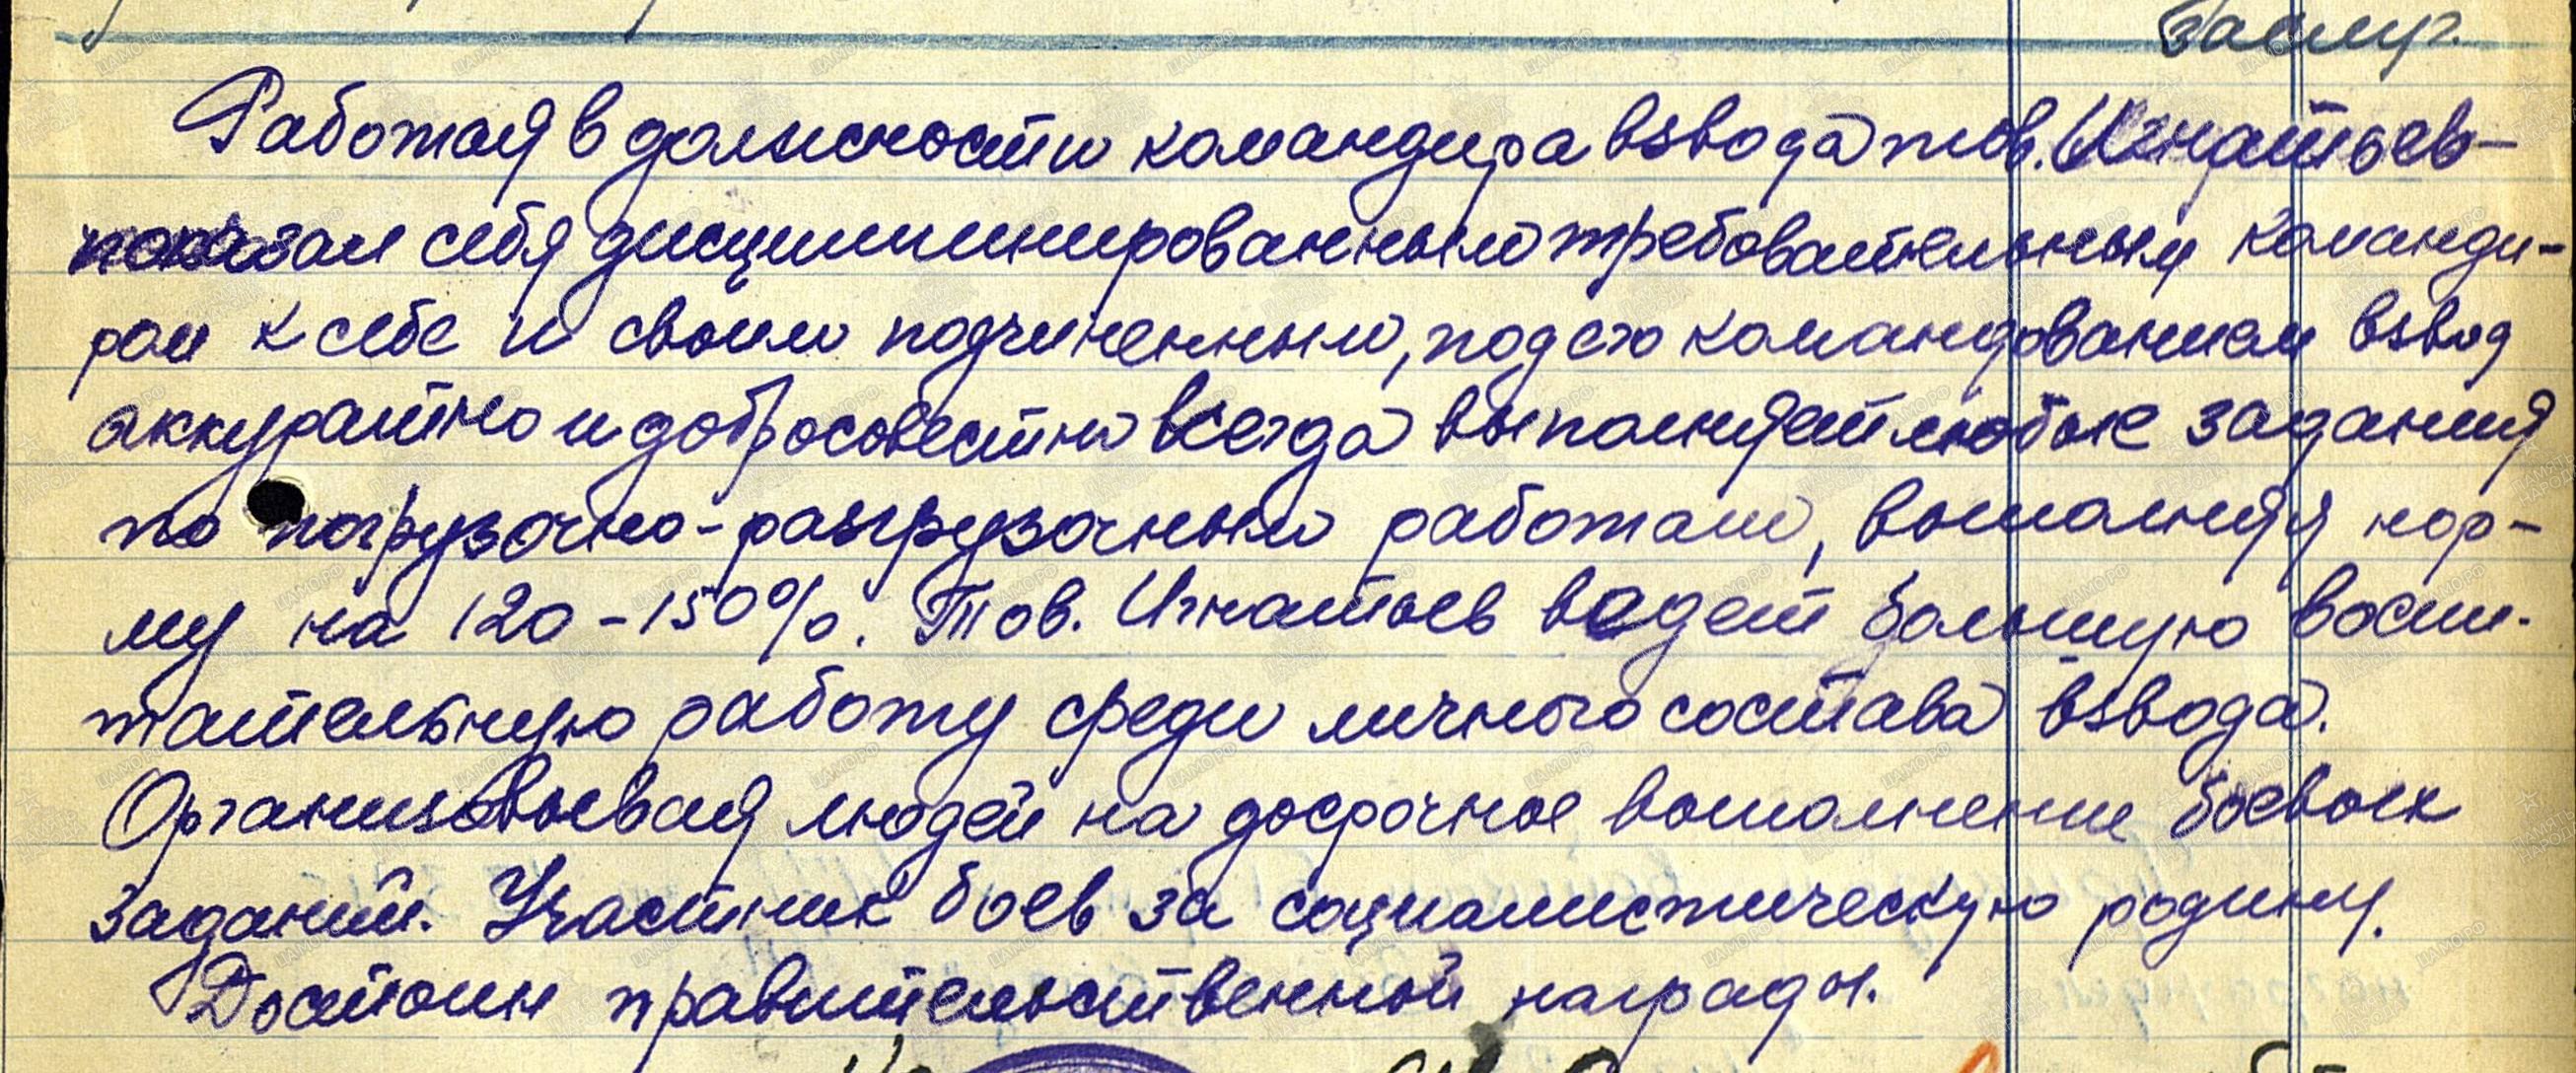 заслуг.
Работая в должности командира взвода тов. Игнатьев-
показал себя дисциплинированным требовательным команди-
ром к себе и своим подчиненным, под его командованием взвод
аккуратно и добросовестно всегда выполняет любые задания
по погрузочно-разгрузочным работам, выполняя нор-
му на 120-150%. Тов. Игнатьев ведет большую воспи-
тательную работу среди личного состава взвода.
Организовывая людей на досрочное выполнение боевых
заданий. Участник боев за социалистическую родину.
Достоин правительственной награды.